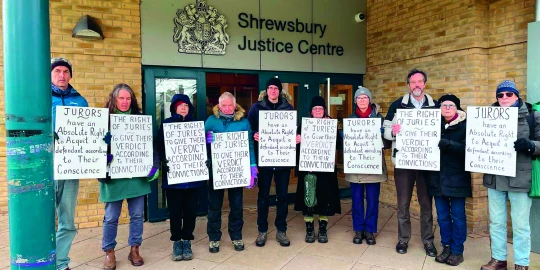 Shrewsbury
Justice Centre
JURORS
have an
Absolute Right
to Acquit a
defendant
according
to their
Conscience
THE RIGHT
OF JURIES
to GIVE THEIR
VERDICT
ACCORDING
to their
CONVICTIONS
THE RIGHT
OF JURIES
to GIVE THEIR
VERDICT
ACCORDING
to their
CONVICTIONS
THE RIGHT
OF JURIES
to GIVE THEIR
VERDICT
ACCORDING
to their
CONVICTIONS
JURORS
have an
Absolute Right
to Acquit a
defendant
according
to their
Conscience
THE RIGHT
OF JURIES
to GIVE THEIR
VERDICT
ACCORDING
to their
CONVICTIONS
JURORS
have an
Absolute Right
to Acquit a
defendant
according
to their
Conscience
THE RIGHT
OF JURIES
to GIVE THEIR
VERDICT
ACCORDING
to their
CONVICTIONS
JURORS
have an
Absolute Right
to Acquit a
defendant
according
to their
Conscience